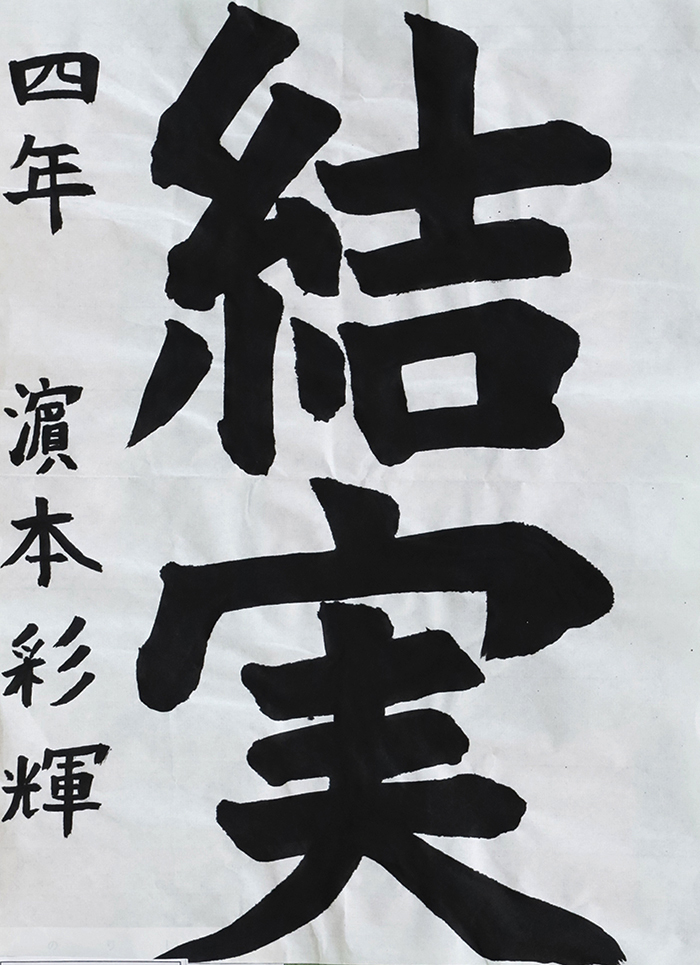 結実
四年 濵本彩輝